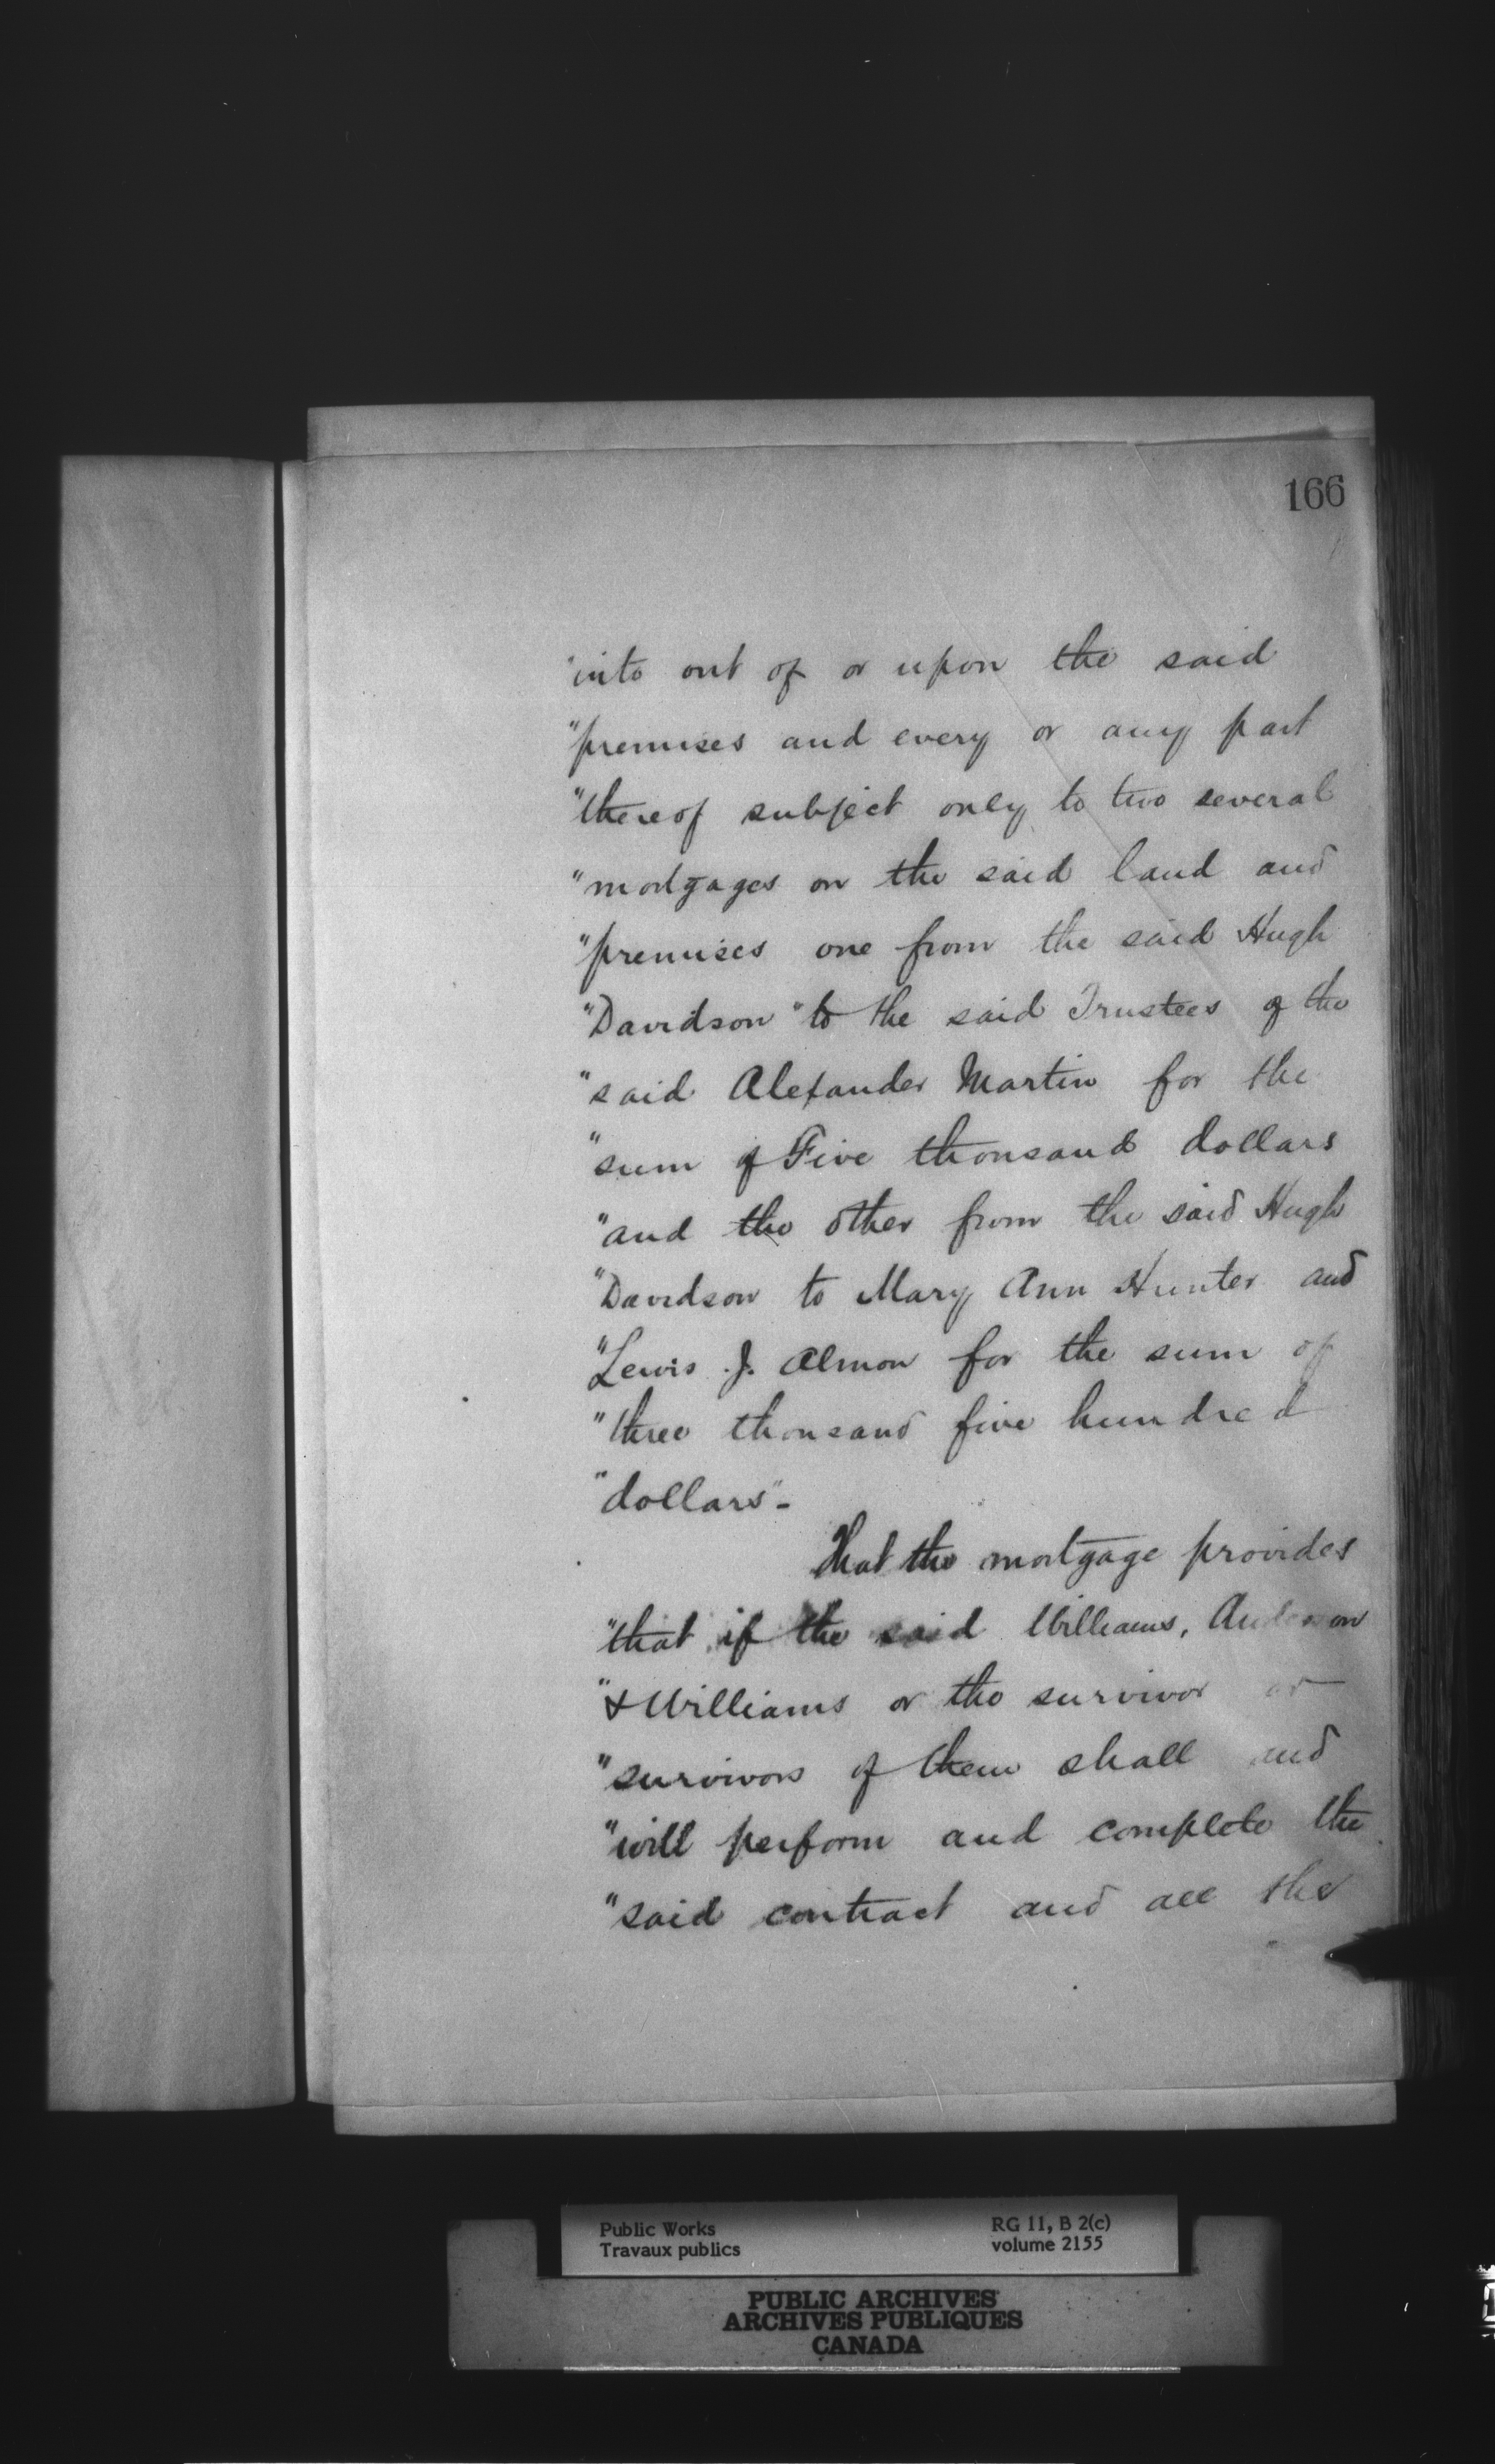 166
"into out of or upon the said
"premises and every or any part
"thereof subject only to two several
"mortgages on the said land and
"premises one from the said Hugh
"Davidson "to the said Trustees of the
"said Alexander Martin for the
"sum of Five thousand dollars
"and the other from the said Hugh
"Davidson to Mary Ann Hunter and
"Lewis J. Almon for the sum of
"three thousand five hundred
"dollars"-
That the mortgage provides
"that if the said Williams, Anderson
"& Williams or the survivor or
"survivors of them shall and
"will perform and complete the
"said contract and all the
Public Works
Travaux publics
RG 11, B 2(c)
volume 2155
PUBLIC ARCHIVES
ARCHIVES PUBLIQUES
CANADA